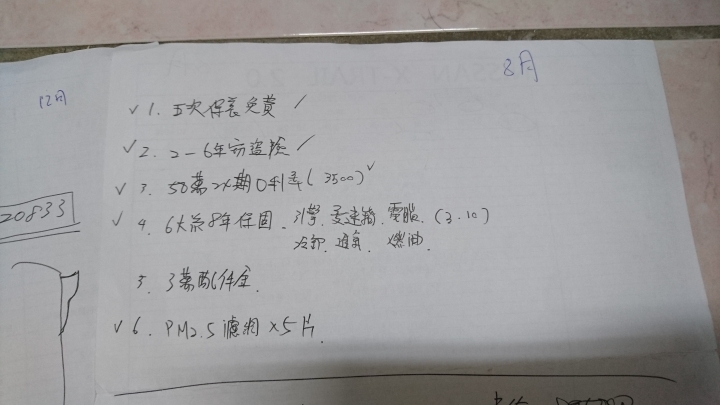 12月
8月
✓ 1. 五次保養免費 /
✓ 2. 2-6年竊盜險 /
✓ 3. 50萬24期0利率(3500) ✓
20833
✓ 4. 6大系8年保固. 引擎. 變速箱. 電腦. (3.10)
冷卻. 通氣. 燃油.
5. 3萬配件金.
✓ 6. PM2.5濾網×5片.